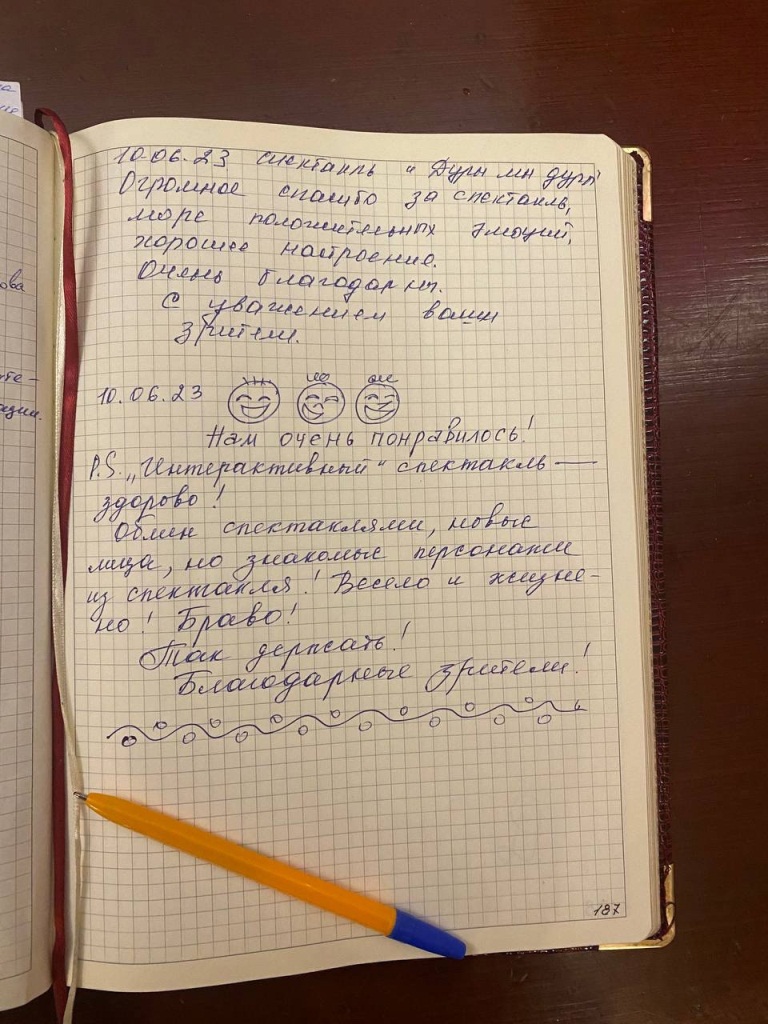 10.06.23 спектакль "Дуры мы дуры"
Огромное спасибо за спектакль,
море положительных эмоций,
хорошее настроение.
Очень благодарны.
С уважением ваши
зрители.
10.06.23
Нам очень понравилось!
P.S. „Интерактивный" спектакль —
здорово!
Обмен спектаклями, новые
лица, но знакомые персонажи
из спектакля! Весело и жизне-
но! Браво!
Так держать!
Благодарные зрители!
187
ова
те-